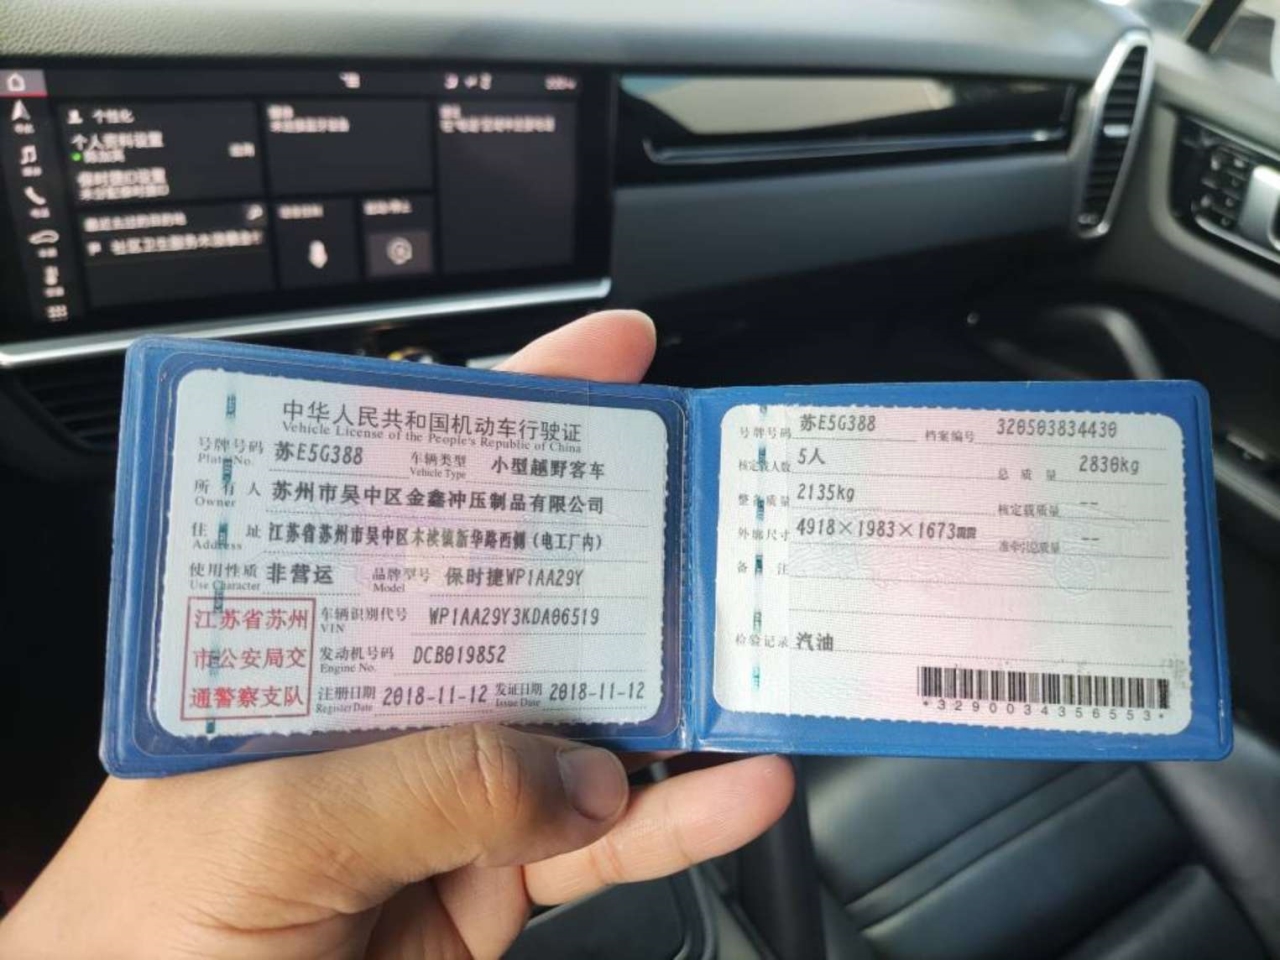 个性化
个人资料设置
中华人民共和国机动车行驶证
Vehicle License of the People's Republic of China
号牌号码 苏E5G388 车辆类型 小型越野客车
Plate No. Vehicle Type
所有人 苏州市吴中区金鑫冲压制品有限公司
Owner
住址 江苏省苏州市吴中区木渎镇新华路西侧（电工厂内）
Address
使用性质 非营运 品牌型号 保时捷WP1AA29Y
Use Character Model
江苏省苏州
市公安局交
通警察支队
车辆识别代号 WP1AA29Y3KDA06519
VIN
发动机号码 DCB019852
Engine No.
注册日期 2018-11-12 发证日期 2018-11-12
Register Date Issue Date
号牌号码 苏E5G388 档案编号 320503834430
核定载人数 5人 总质量 2830kg
整备质量 2135kg 核定载质量 --
外廓尺寸 4918×1983×1673 准牵引总质量 --
备注
检验记录 汽油
*3290034356553*